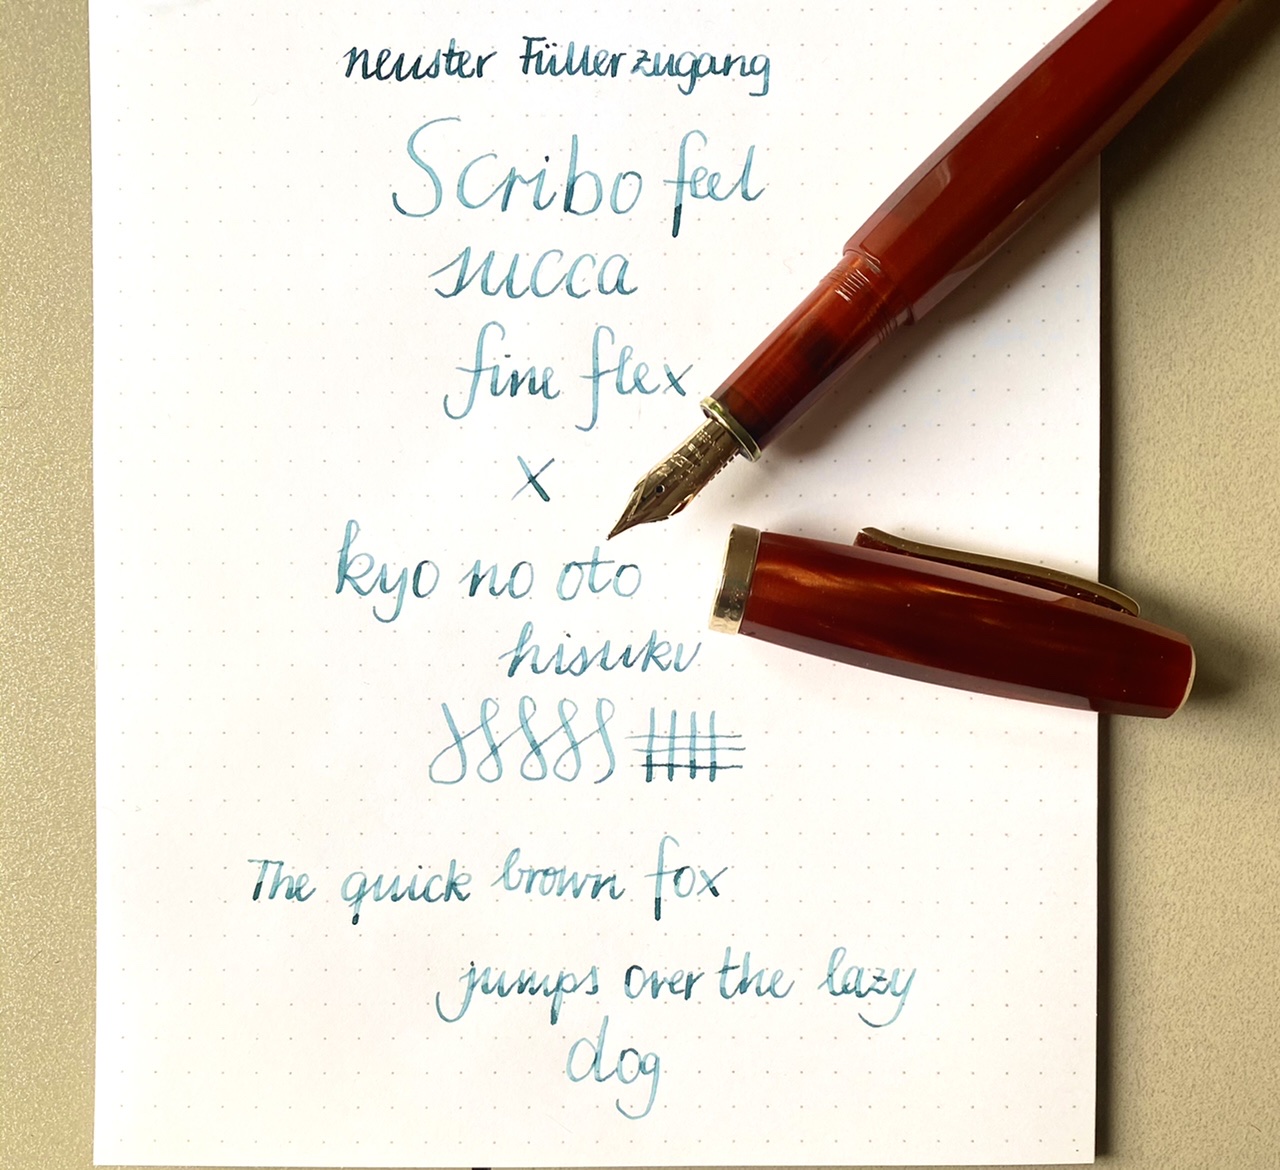 neuster Füllerzugang
Scribo feel
succa
fine flex
x
kyo no oto
hisuku
The quick brown fox
jumps over the lazy
dog